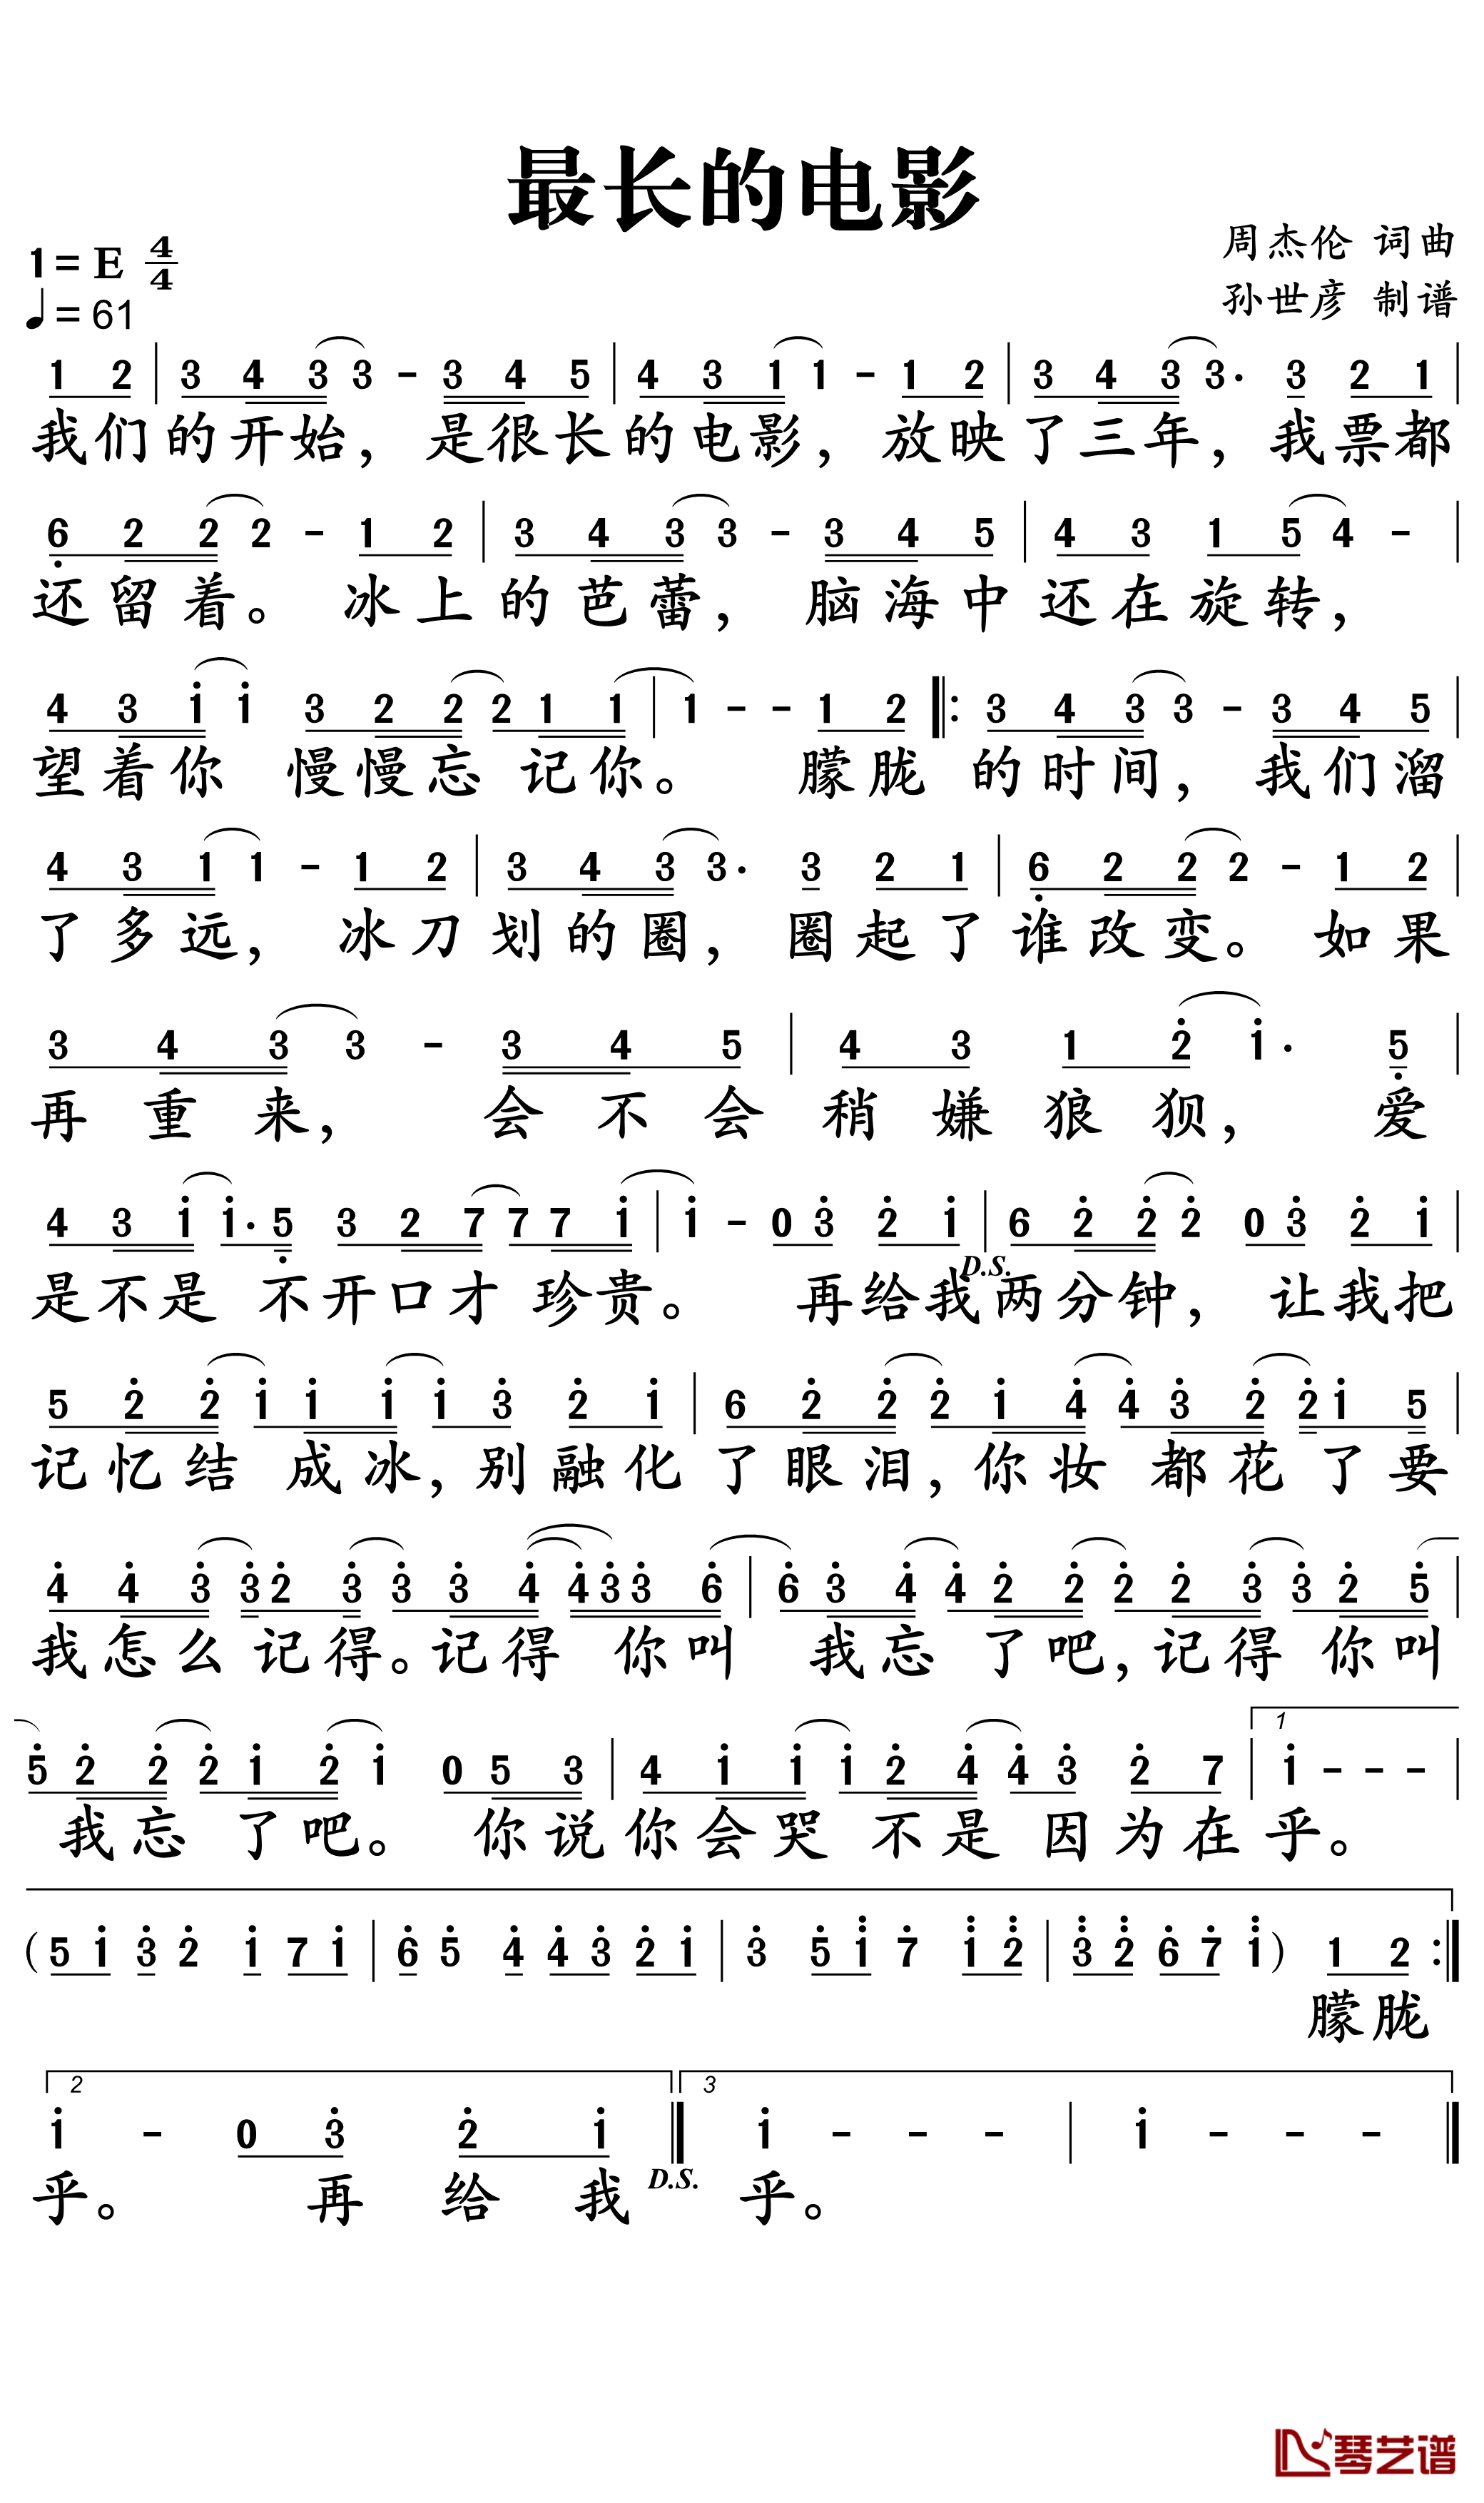 最长的电影
1= E 4/4
♩= 61
周杰伦 词曲
孙世彦 制谱
1 2 | 3 4 3 3 - 3 4 5 | 4 3 1 1 - 1 2 | 3 4 3 3. 3 2 1 |
我们的开始, 是很长的电影, 放映了三年, 我票都
6 2 2 2 - 1 2 | 3 4 3 3 - 3 4 5 | 4 3 1 5 4 - |
还留着。 冰上的芭蕾, 脑海中还在旋转,
4 3 1 1 3 2 2 2 1 1 | 1 - - 1 2 ‖: 3 4 3 3 - 3 4 5 |
望着你 慢慢忘 记你。 朦胧 的时间, 我们溜
4 3 1 1 - 1 2 | 3 4 3 3. 3 2 1 | 6 2 2 2 - 1 2 |
了多远, 冰刀划的圈, 圈起了谁改变。 如果
3 4 3 3 - 3 4 5 | 4 3 1 2 1. 5
再重来, 会不会稍嫌狼狈, 爱
4 3 1 1. 5 3 2 7 7 7 1 | 1 - 0 3 2 1 | 6 2 2 2 0 3 2 1 |
D.S.
是不是 不开口才珍贵。 再给我两分钟, 让我把
5 2 2 1 1 1 1 3 2 1 | 6 2 2 2 1 4 4 3 2 2 1 5 |
记忆结 成冰, 别融化了眼泪, 你妆都花了要
4 4 3 3 2 3 3 3 4 4 3 3 6 | 6 3 4 4 2 2 2 2 3 3 2 5 |
我怎么记得。记得 你叫 我忘 了吧, 记得 你叫
5 2 2 2 1 2 1 0 5 3 | 4 1 1 1 2 4 4 3 2 7 | 1 - - - |
1
我忘 了吧。 你说你会哭 不是因为在乎。
( 5 1 3 2 1 7 1 | 6 5 4 4 3 2 1 | 3 5 1 7 1 2 | 3 2 6 7 1 ) 1 2 :‖
朦胧
2
3
1 - 0 3 2 1 ‖ 1 - - - | 1 - - - ‖
乎。 再给我 D.S. 乎。
琴艺谱